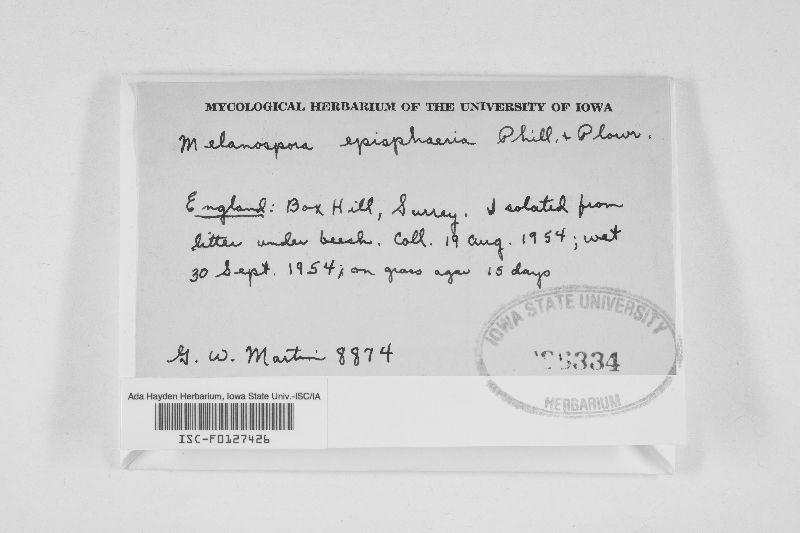 MYCOLOGICAL HERBARIUM OF THE UNIVERSITY OF IOWA
Melanospora episphaeria Phill. + Plowr.
England: Box Hill, Surrey. Isolated from
litter under beech. Coll. 19 Aug. 1954; wet
30 Sept. 1954; on grass agar 15 days
G. W. Martin 8874
IOWA STATE UNIVERSITY
334
HERBARIUM
Ada Hayden Herbarium, Iowa State Univ.-ISC/IA
ISC-F0127426